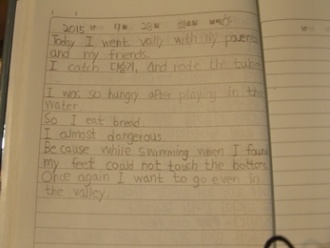 2015 년 7월 28일
Today I went vally with my parents
and my friends.
I catch 다슬기, And rode the tube
I was so hungry after playing in the
water
So I eat bread.
I almost dangerous.
Because while swimming when I found
my feet could not touch the bottom
Once again I want to go even in
the valley.